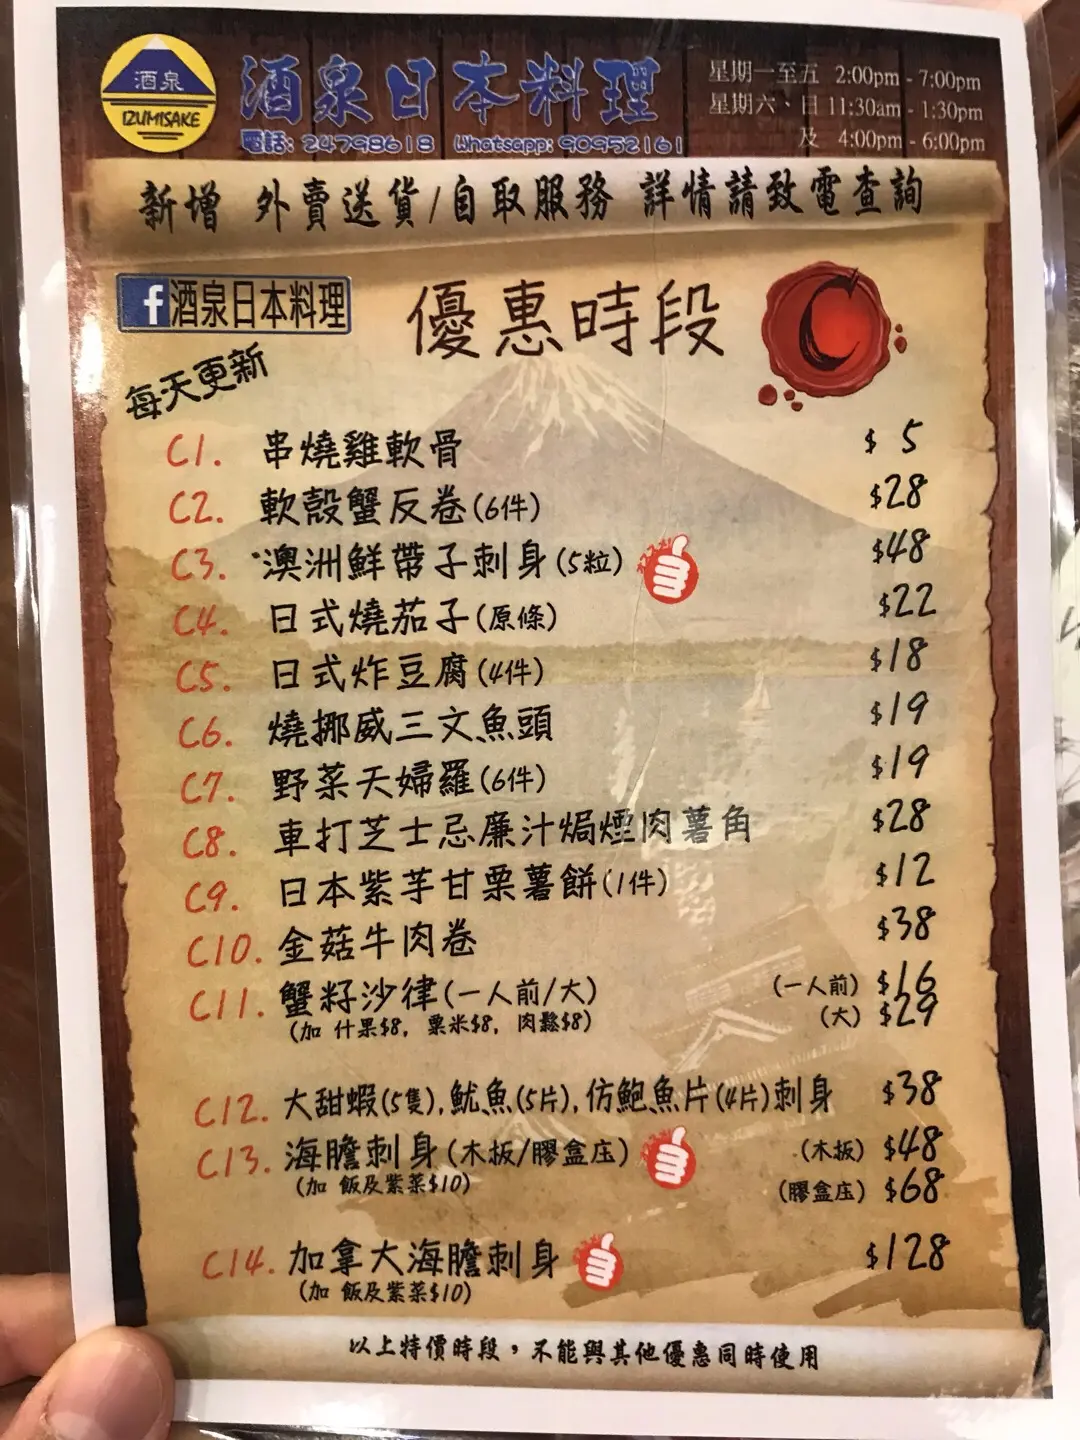 酒泉
IZUMISAKE
酒泉日本料理
電話: 24798618 Whatsapp: 90952161
星期一至五 2:00pm - 7:00pm
星期六、日 11:30am - 1:30pm
及 4:00pm - 6:00pm
新增 外賣送貨/自取服務 詳情請致電查詢
f 酒泉日本料理
優惠時段
C
每天更新
C1. 串燒雞軟骨 $5
C2. 軟殼蟹反卷(6件) $28
C3. 澳洲鮮帶子刺身(5粒) オススメ! $48
C4. 日式燒茄子(原條) $22
C5. 日式炸豆腐(4件) $18
C6. 燒挪威三文魚頭 $19
C7. 野菜天婦羅(6件) $19
C8. 車打芝士忌廉汁焗煙肉薯角 $28
C9. 日本紫芋甘栗薯餅(1件) $12
C10. 金菇牛肉卷 $38
C11. 蟹籽沙律(一人前/大) (一人前) $16
(加 什果$8, 粟米$8, 肉鬆$8) (大) $29
C12. 大甜蝦(5隻),魷魚(5片),仿鮑魚片(4片)刺身 $38
C13. 海膽刺身(木板/膠盒庄) (木板) $48
(加 飯及紫菜$10) (膠盒庄) $68
C14. 加拿大海膽刺身 $128
(加 飯及紫菜$10)
以上特價時段，不能與其他優惠同時使用